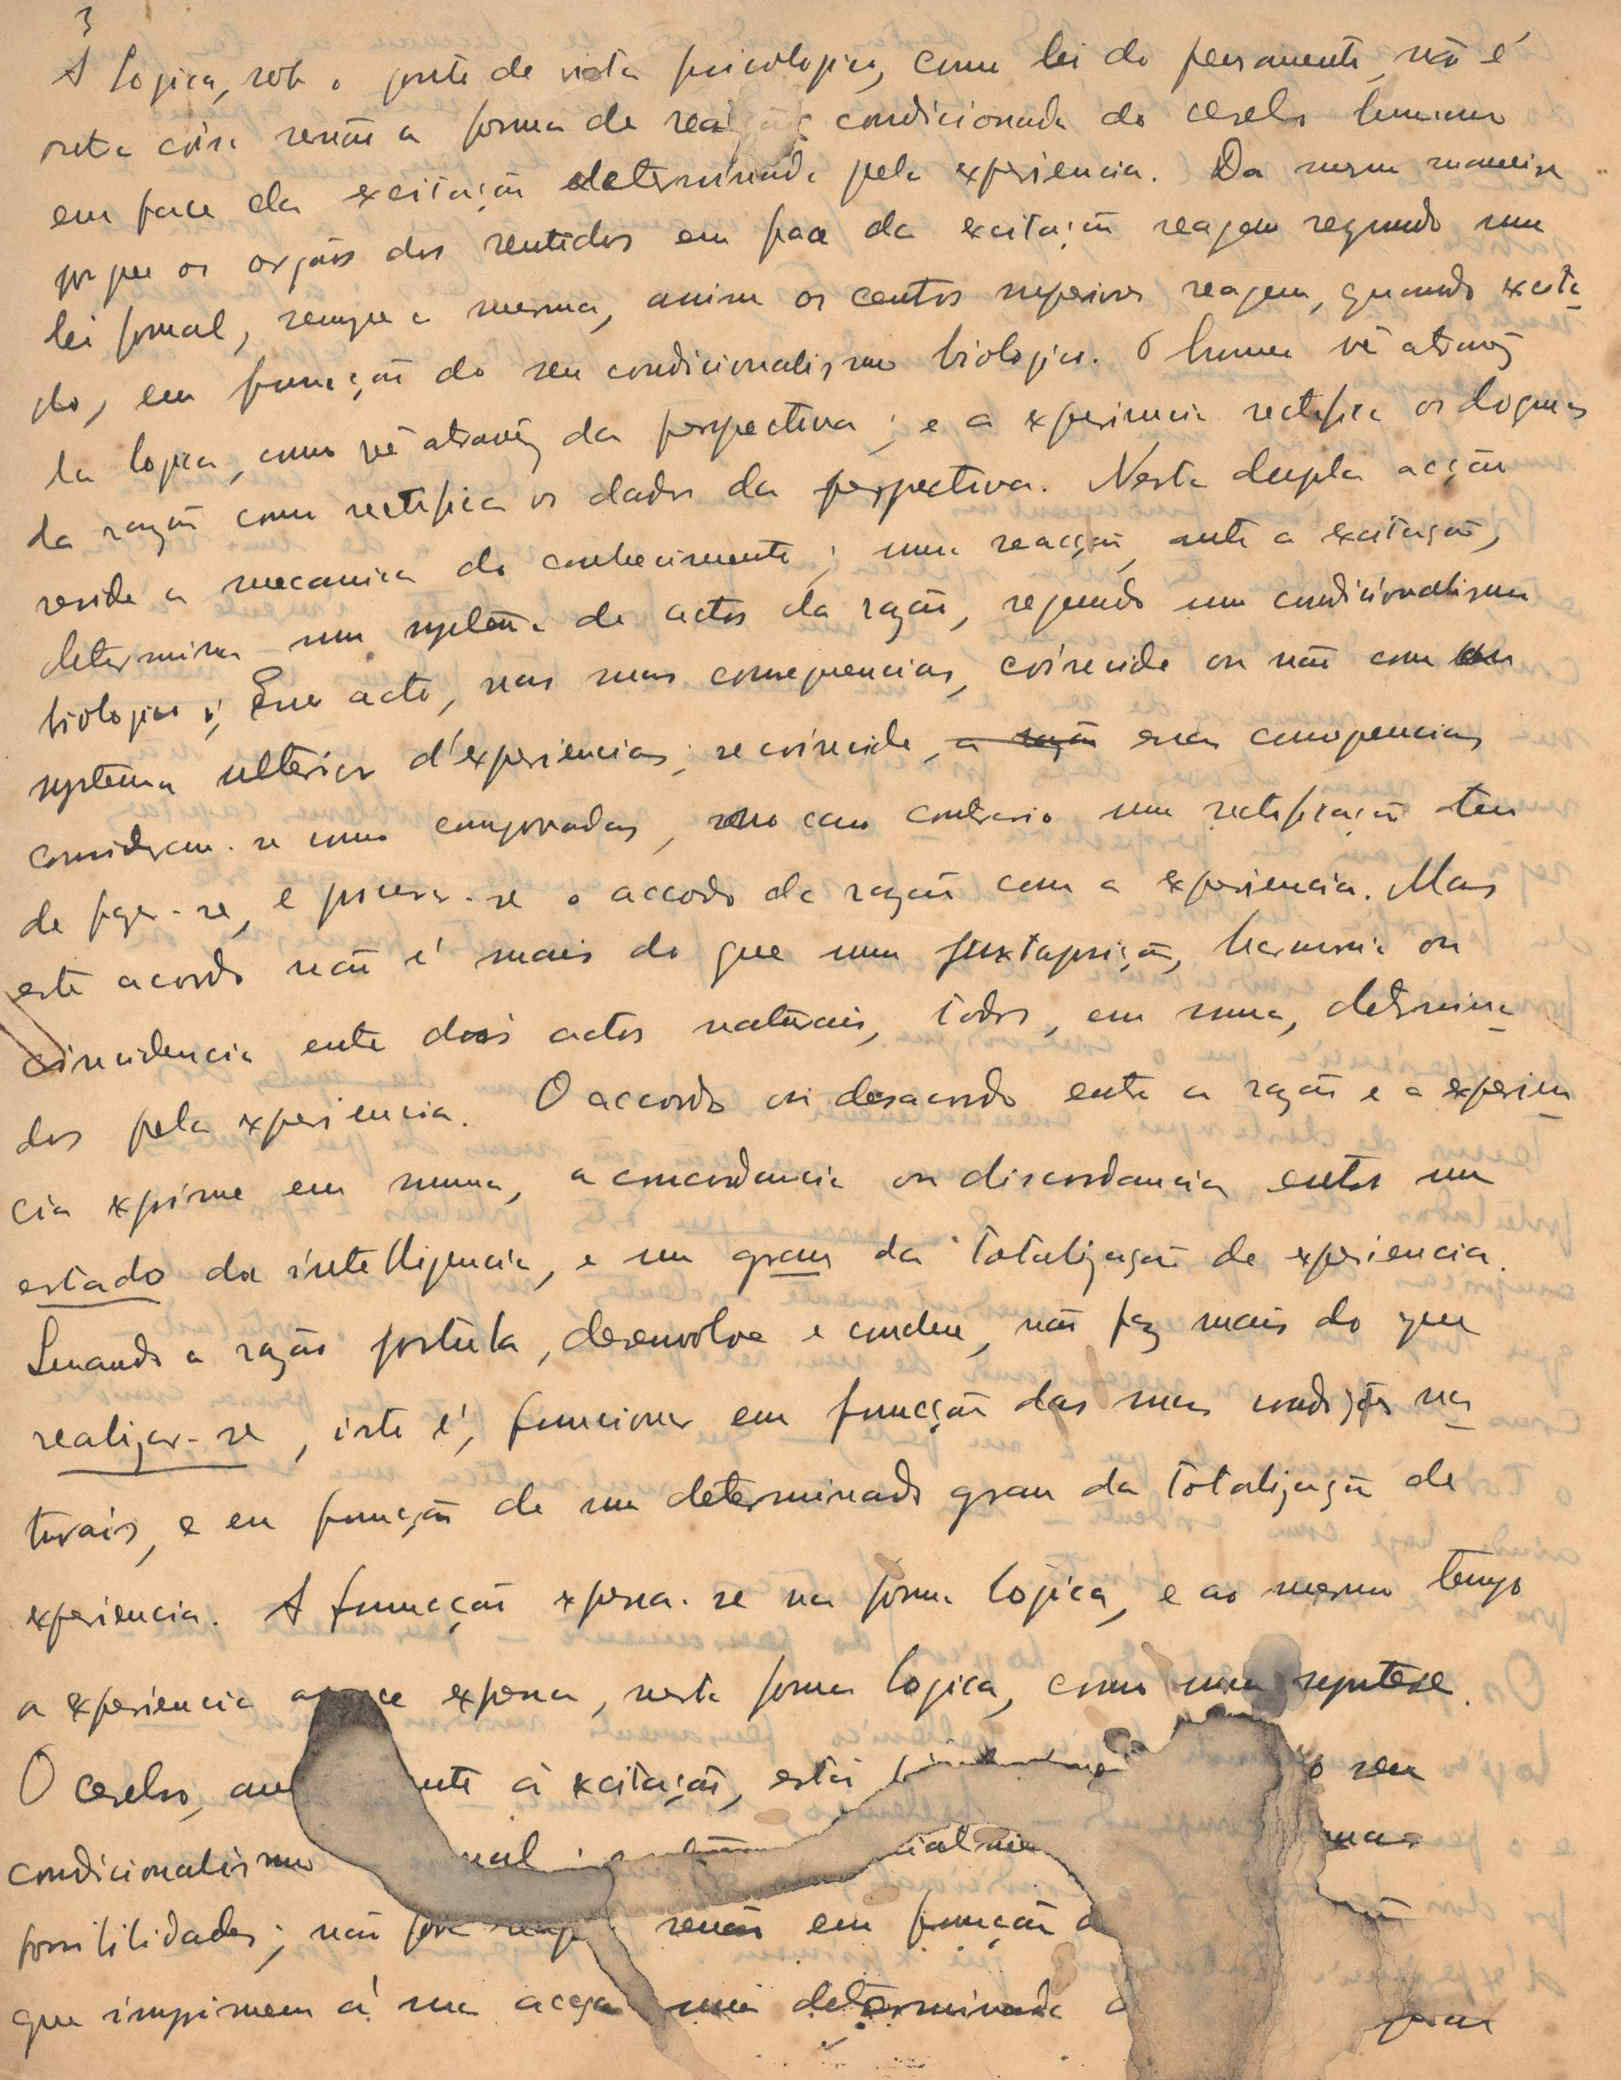 3
A logica, sob o ponto de vista psicologico, como lei do pensamento, não é
outra coisa senão a forma de reacção condicionada do cerebro humano
em face da excitação determinada pela experiencia. Da mesma maneira
por que os orgãos dos sentidos em face da excitação reagem segundo uma
lei formal, sempre a mesma, assim os centros superiores reagem, quando excita-
dos, em funcção do seu condicionalismo biologico. O homem vê atravez
da logica, como vê atravez da perspectiva; e a experiencia rectifica os dogmas
da razão como rectifica os dados da perspectiva. Nesta dupla acção
reside a mecanica do conhecimento; uma reacção, ante a excitação,
determina um systema de actos da razão, segundo um condicionalismo
biologico; Esse acto, nas suas consequencias, coincide ou não com um
systema ulterior d'experiencias; se coincide, a razão essas consequencias
consideram-se como comprovadas, no caso contrario uma rectificação tem
de fazer-se, e procura-se o accordo da razão com a experiencia. Mas
este acordo não é mais do que uma juxtaposição, harmonia ou
coincidencia entre dois actos naturais, todos, em suma, determina-
dos pela experiencia. O accordo ou desacordo entre a razão e a experien-
cia exprime em summa, a concordancia ou discordancia entre um
estado da intelligencia, e um grau da totalização de experiencia.
Quando a razão postula, desenvolve e conclue, não faz mais do que
realizar-se, isto é, funcionar em funcção das suas condições na-
turais, e em funcção de um determinado grau da totalização de
experiencia. A funcção expressa-se na forma logica, e ao mesmo tempo
a experiencia expressa, nesta forma logica, como uma synthese.
O cerebro, á excitação, está o seu
condicionalismo
possibilidades; não senão em funcção
que imprimem á sua acção uma determinada